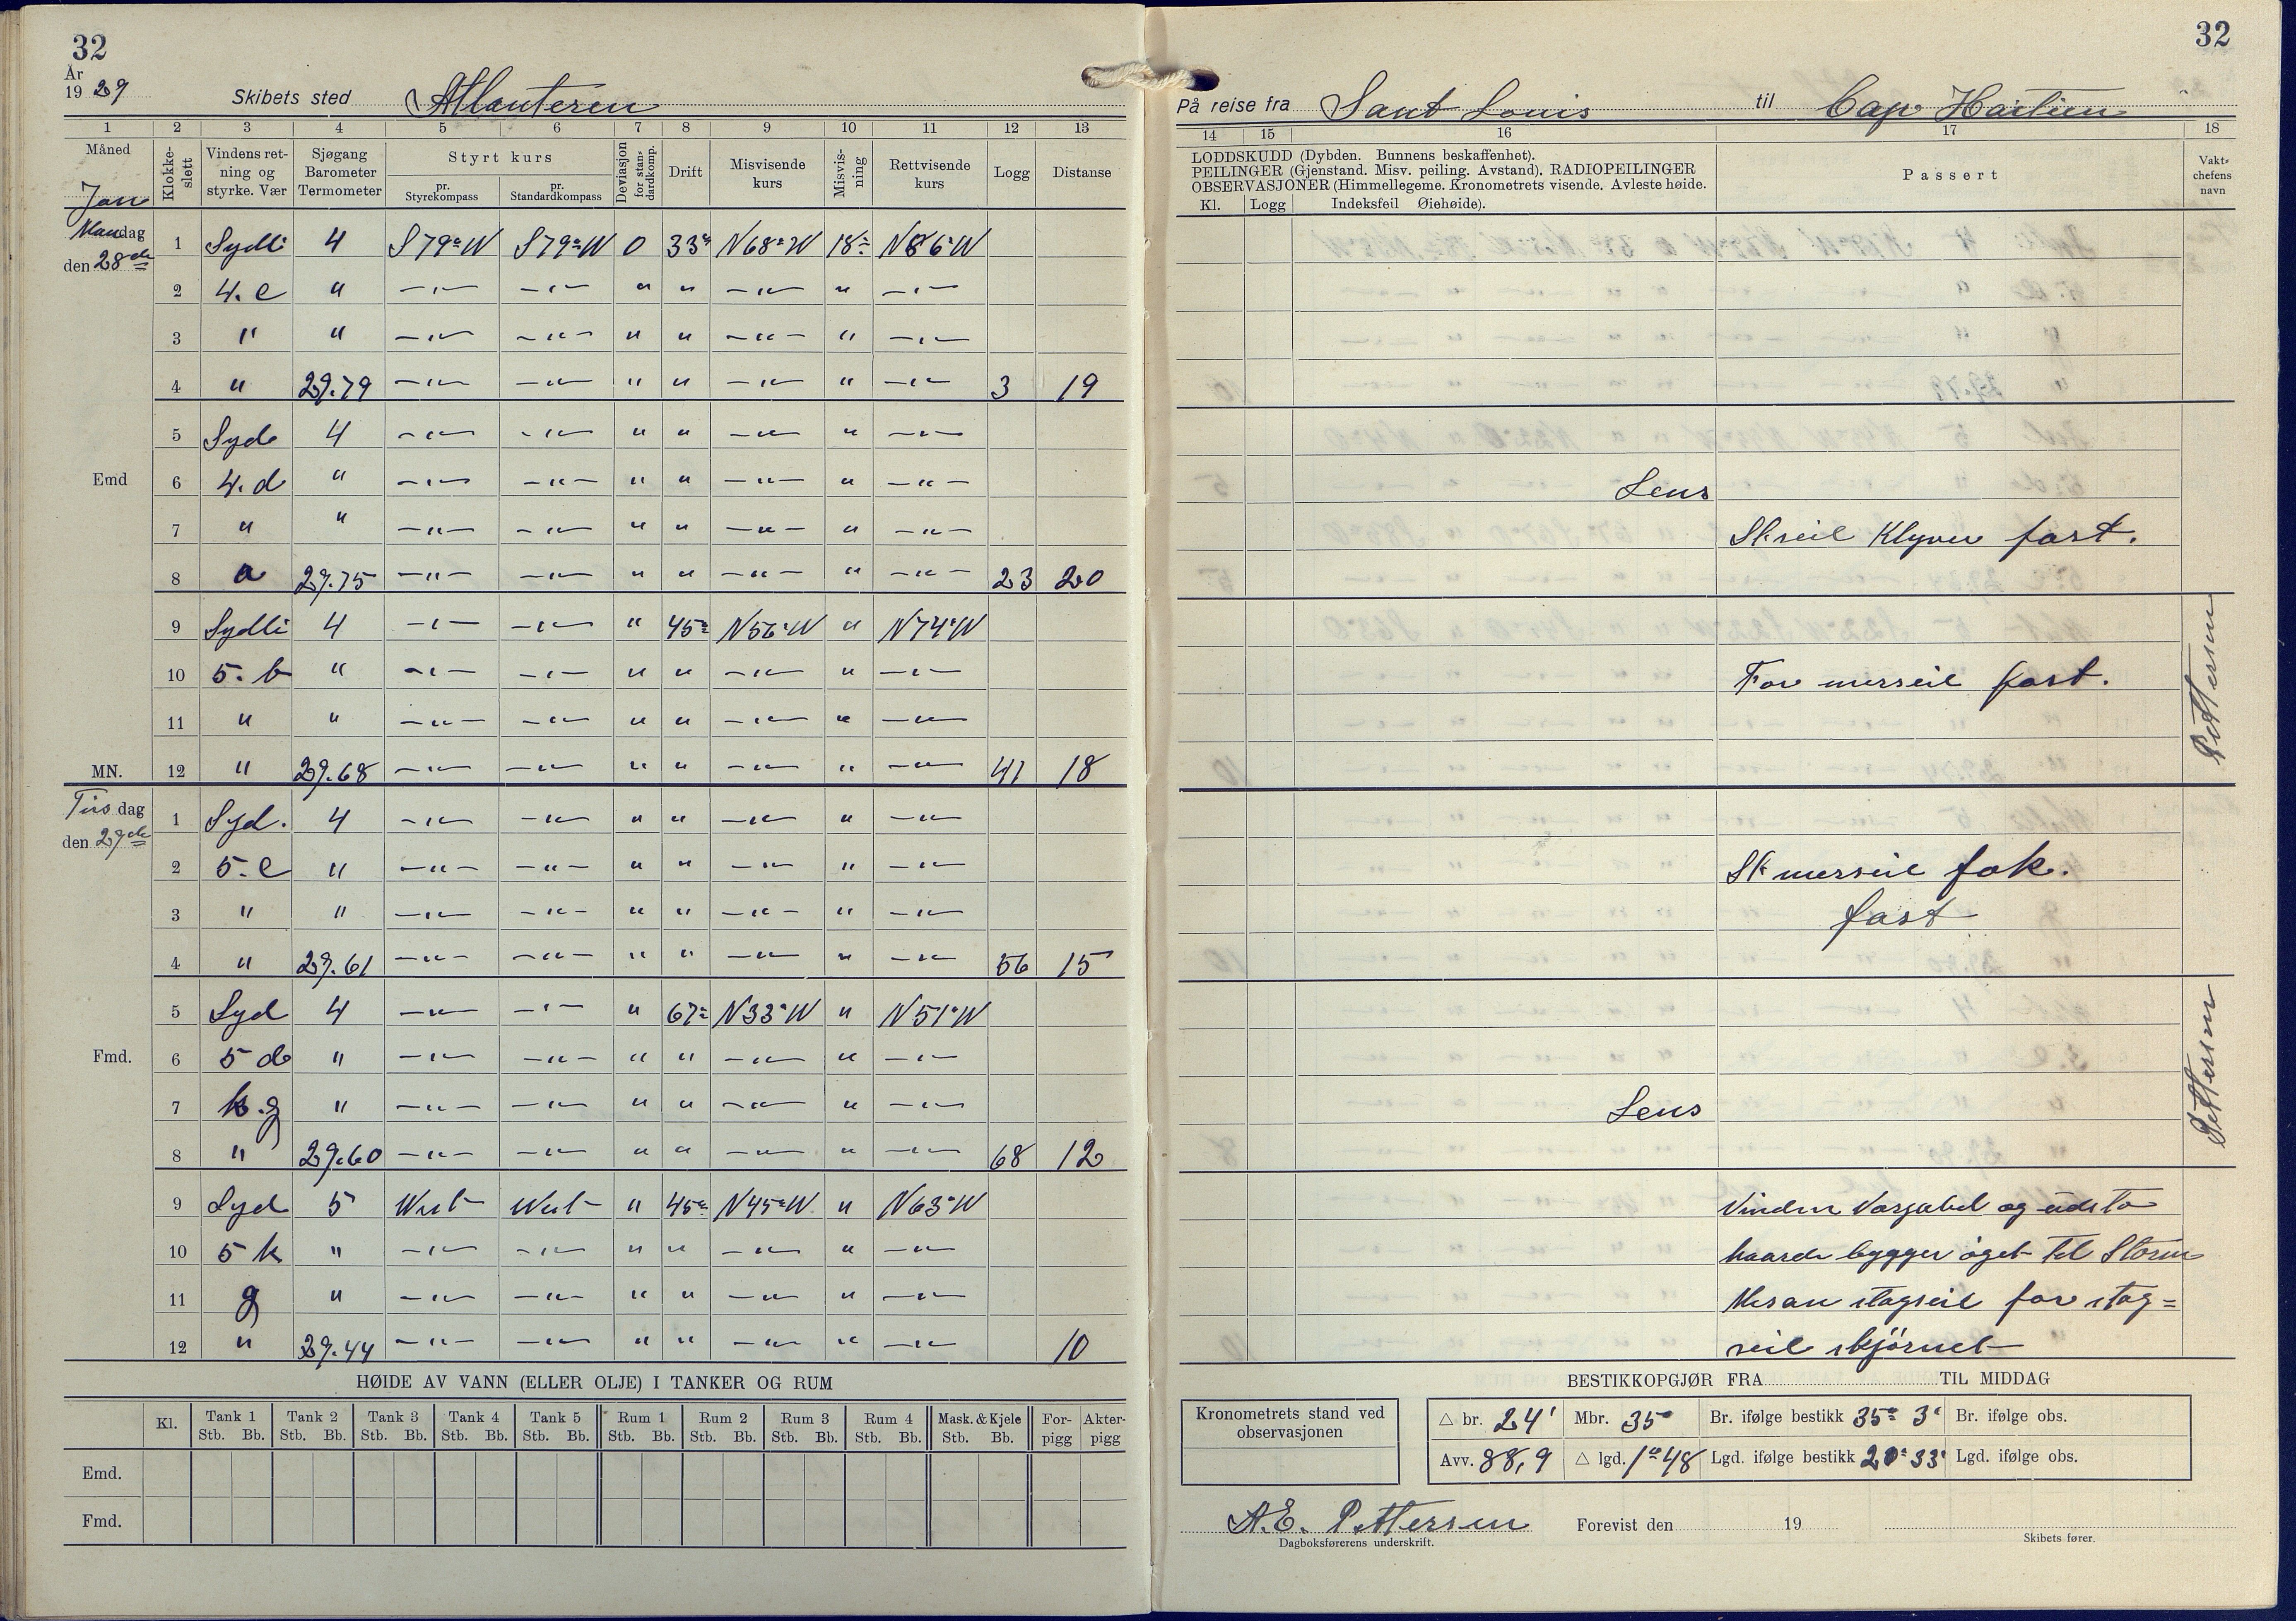 32
År
19 29 Skibets sted Atlanteren
1 2 3 4 5 6 7 8 9 10 11 12 13
Måned Klokke-slett Vindens ret-ning og styrke. Vær Sjøgang Barometer Termometer Styrt kurs pr. Styrekompass pr. Standardkompass Deviasjon for stan-dardkomp. Drift Misvisende kurs Misvis-ning Rettvisende kurs Logg Distanse
Jan
Mandag 1 Sydli 4 S79°W S79°W 0 33° N68°W 18° N86°W
den 28de
2 4. c " —"— —"— " " —"— " —"—
3 " " —"— —"— " " —"— " —"—
4 " 29.79 —"— —"— " " —"— " —"— 3 19
5 Syd 4 —"— —"— " " —"— " —"—
Emd 6 4. d " —"— —"— " " —"— " —"—
7 " " —"— —"— " " —"— " —"—
8 " 29.75 —"— —"— " " —"— " —"— 23 20
9 Sydli 4 —"— —"— " 45° N56°W " N74°W
10 5. b " —"— —"— " " —"— " —"—
11 " " —"— —"— " " —"— " —"—
MN. 12 " 29.68 —"— —"— " " —"— " —"— 41 18
Tirsdag 1 Syd. 4 —"— —"— " " —"— " —"—
den 29de
2 5. c " —"— —"— " " —"— " —"—
3 " " —"— —"— " " —"— " —"—
4 " 29.61 —"— —"— " " —"— " —"— 56 15
5 Syd 4 —"— —"— " 67° N33°W " N51°W
Fmd. 6 5 d " —"— —"— " " —"— " —"—
7 k.g " —"— —"— " " —"— " —"—
8 " 29.60 —"— —"— " " —"— " —"— 68 12
9 Syd 5 West West " 45° N45°W " N63°W
10 5 k " —"— —"— " " —"— " —"—
11 g " —"— —"— " " —"— " —"—
12 " 29.44 —"— —"— " " —"— " —"— 10
HØIDE AV VANN (ELLER OLJE) I TANKER OG RUM
Kl. Tank 1 Tank 2 Tank 3 Tank 4 Tank 5 Rum 1 Rum 2 Rum 3 Rum 4 Mask. & Kjele For- Akter-
Stb. Bb. Stb. Bb. Stb. Bb. Stb. Bb. Stb. Bb. Stb. Bb. Stb. Bb. Stb. Bb. Stb. Bb. Stb. Bb. pigg pigg
Emd.
Fmd.
32
På reise fra Sant Louis til Cap Haitien
14 15 16 17 18
LODDSKUDD (Dybden. Bunnens beskaffenhet).
PEILINGER (Gjenstand. Misv. peiling. Avstand). RADIOPEILINGER
OBSERVASJONER (Himmellegeme. Kronometrets visende. Avleste høide.
Kl. Logg Indeksfeil Øiehøide).
Passert
Vakt-
chefens
navn
Lens
Skseil Klyver fast.
For merseil fast.
Pettersen
Sk merseil fok.
fast
Lens
Pettersen
Vinden Varjabel og udsto
haarde bygger øget til Storm
Mesan stagseil for stag=
seil skjørnet
BESTIKKOPGJØR FRA TIL MIDDAG
Kronometrets stand ved
observasjonen
△ br. 24' Mbr. 35° Br. ifølge bestikk 35° 3' Br. ifølge obs.
Avv. 88,9 △ lgd. 1°48 Lgd. ifølge bestikk 20° 33' Lgd. ifølge obs.
A.E. Pettersen Forevist den 19
Dagboksførerens underskrift. Skibets fører.